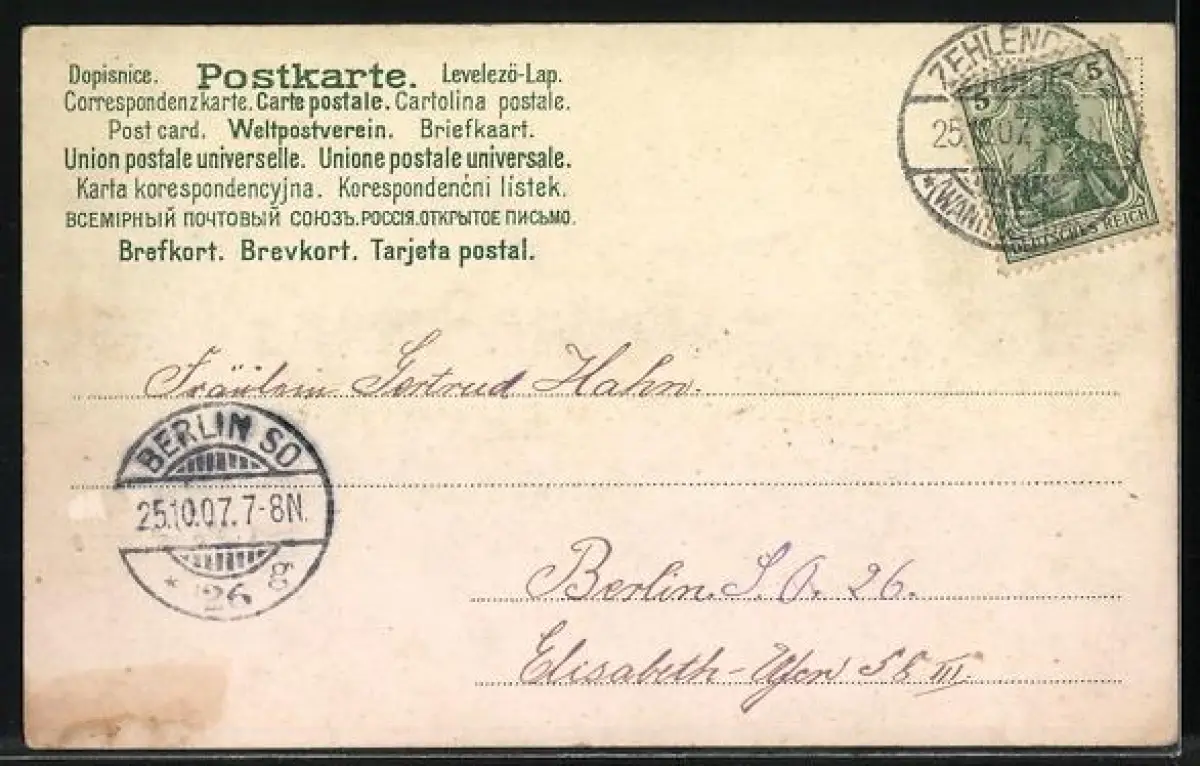 Dopisnice. Postkarte. Levelező-Lap.
Correspondenzkarte. Carte postale. Cartolina postale.
Post card. Weltpostverein. Briefkaart.
Union postale universelle. Unione postale universale.
Karta korespondencyjna. Korespondenčni lístek.
ВСЕМІРНЫЙ ПОЧТОВЫЙ СОЮЗЪ. РОССІЯ. ОТКРЫТОЕ ПИСЬМО.
Brefkort. Brevkort. Tarjeta postal.
5 5
DEUTSCHES REICH
25.10.07.
Fräulein Gertrud Hahn.
BERLIN SO
25.10.07. 7-8N.
* 26
Berlin. S. O. 26.
Elisabeth-Ufer 58 III.